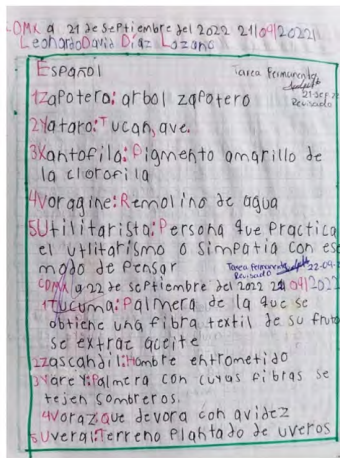 CDMX a 21 de septiembre del 2022 21/09/2022
Leonardo David Díaz Lozano
Español
Tarea Permanente
21-sep-
Revisado
1Zapotero: arbol zapotero
2Yataro: Tucan, ave.
3Xantofila: Pigmento amarillo de
la clorofila
4Voragine: Remolino de agua
5Utilitarista: Persona que Practica
el utlitarismo o simpatia con ese
modo de Pensar
Tarea Permanente 22-09-
Revisado
CDMX a 22 de septiembre del 2022 22/09/2022
1Tucuma: Palmera de la que se
obtiene una fibra textil de su fruto
se extrae aceite
2Zascandil: Hombre entrometido
3Yarey: Palmera con cuyas fibras se
tejen sombreros.
4Voraz: que devora con avidez
5Uveral: Terreno Plantado de uveros